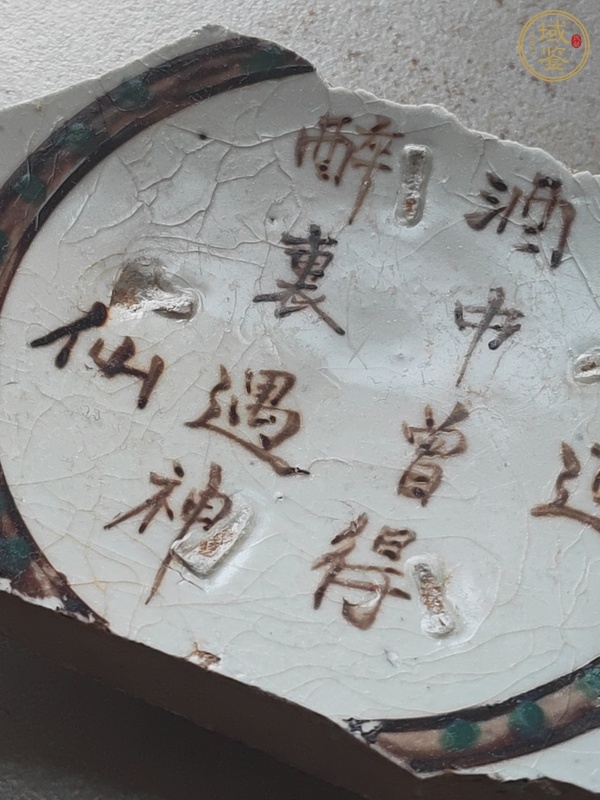 酒中曾得
醉裏遇神
仙
域鉴